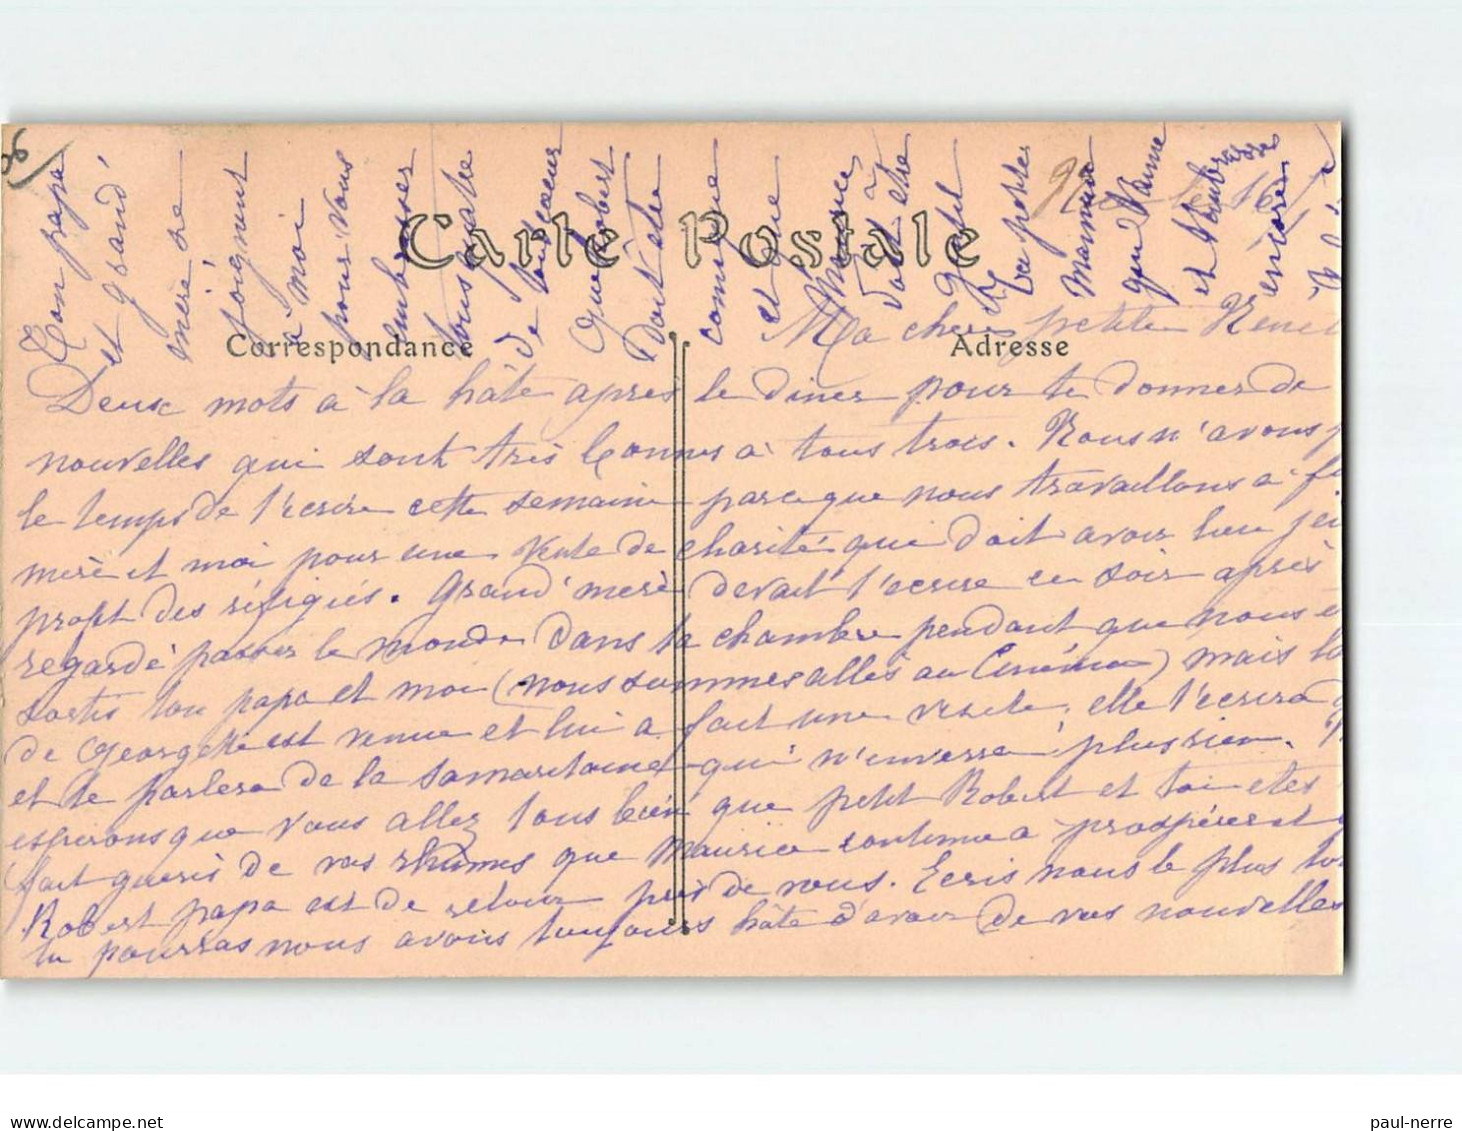 Carte Postale
Correspondance
Adresse
Ma chère petite Renée
Deux mots à la hâte après le diner pour te donner de
nouvelles qui sont très bonnes à tous trois. Nous n'avons
le temps de t'écrire cette semaine parce que nous travaillons
mère et moi pour une vente de charité qui doit avoir lieu
profit des réfugiés. Grand'mère devait t'écrire ce soir après
regardé passer le monde dans la chambre pendant que nous
sortis ton papa et moi (nous sommes allés au Cinéma) mais
de Georgette est venue et lui a fait une visite, elle t'écrira
et te parlera de la samaritaine qui n'enverra plus rien.
espérons que vous allez tous bien que petit Robert et toi etes
fait guéris de vos rhumes que Maurice continue a prospérer et
Robert papa est de retour près de vous. Ecris nous le plus tot
tu pourras nous avons toujours hâte d'avoir de vos nouvelles
Ton papa
et grand'
mère se
joignent
à moi
pour vous
embrasser
tous quatre
de tout coeur
Que Robert
doit etre
et que
Maurice
doit etre
Ta petite
Maman
qui t'aime
et
encore
paul-nerre